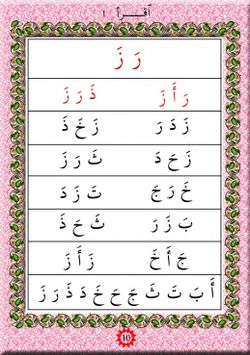 اقرأ ١
رَ زَ
رَ أَ زَ ذَ رَ زَ
زَ دَ رَ زَ خَ ذَ
زَ حَ دَ ثَ رَ زَ
خَ رَ جَ تَ زَ دَ
بَ زَ رَ ثَ حَ ذَ
جَ أَ خَ زَ أَ زَ
أَ بَ تَ ثَ جَ حَ خَ دَ ذَ رَ زَ
10